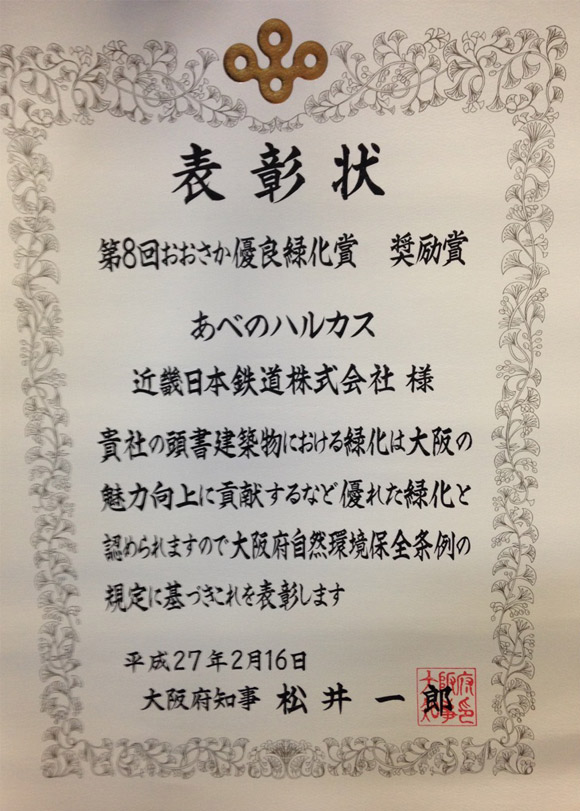 表彰状
第8回おおさか優良緑化賞　奨励賞
あべのハルカス
近畿日本鉄道株式会社 様
貴社の頭書建築物における緑化は大阪の
魅力向上に貢献するなど優れた緑化と
認められますので大阪府自然環境保全条例の
規定に基づきこれを表彰します
平成27年2月16日
大阪府知事 松井一郎
大阪府知事印